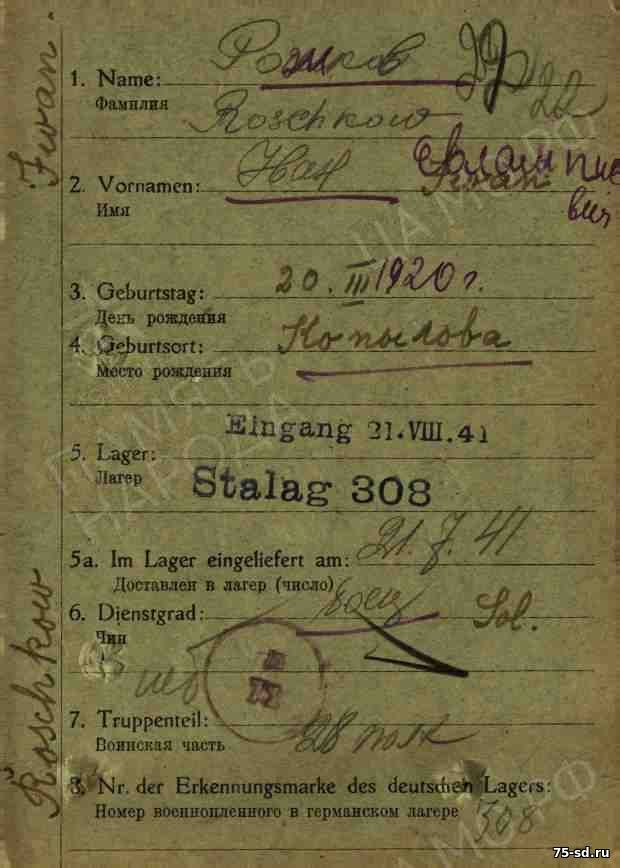 Рожков
1. Name:
Фамилия
Roschkow
22
2. Vornamen: Иван Iwan
Имя
3. Geburtstag: 20. III 1920 г.
День рождения
4. Geburtsort: Копылова
Место рождения
Eingang 21.VIII.41
5. Lager:
Лагер
Stalag 308
5a. Im Lager eingeliefert am: 21. 7. 41
Доставлен в лагер (число)
6. Dienstgrad: боец Sol.
Чин
7. Truppenteil: 28 полк
Воинская часть
8. Nr. der Erkennungsmarke des deutschen Lagers:
Номер военнопленного в германском лагере 308
Roschkow Iwan.
ПАМЯТЬ
НАРОДА
ЦА МО РФ
75-sd.ru